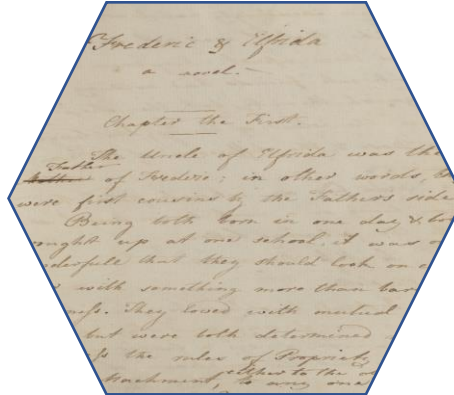 Frederic & Elfrida
a novel.
Chapter the First.
The Uncle of Elfrida was the
Father
of Frederic; in other words,
were first cousins by the Father's side
Being both born in one day &
up at one school, it was
that they should look on
with something more than
They loved with mutual
but were both determined
the rules of Propriety
either to the
to any one